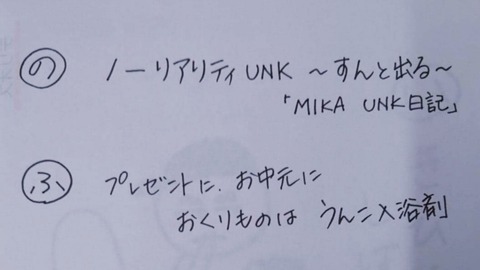 の ノーリアリティUNK ～すんと出る～
「MIKA UNK日記」
ふ プレゼントに、お中元に
おくりものは うんこ入浴剤